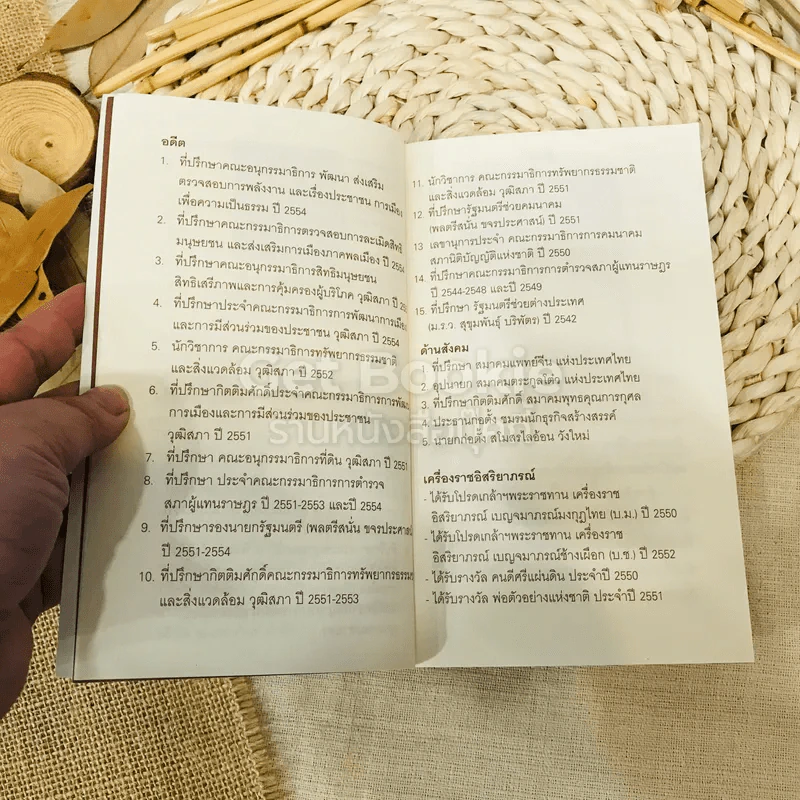 อดีต
1. ที่ปรึกษาคณะอนุกรรมาธิการ พัฒนา ส่งเสริม
ตรวจสอบการพลังงาน และเรื่องประชาชน การเมือง
เพื่อความเป็นธรรม ปี 2554
2. ที่ปรึกษาคณะกรรมาธิการตรวจสอบการละเมิดสิทธิ
มนุษยชน และส่งเสริมการเมืองภาคพลเมือง ปี 2554
3. ที่ปรึกษาคณะอนุกรรมาธิการสิทธิมนุษยชน
สิทธิเสรีภาพและการคุ้มครองผู้บริโภค วุฒิสภา ปี
4. ที่ปรึกษาประจำคณะกรรมาธิการการพัฒนาการเมือง
และการมีส่วนร่วมของประชาชน วุฒิสภา ปี 2554
5. นักวิชาการ คณะกรรมาธิการทรัพยากรธรรมชาติ
และสิ่งแวดล้อม วุฒิสภา ปี 2552
6. ที่ปรึกษากิตติมศักดิ์ประจำคณะกรรมาธิการการพัฒนา
การเมืองและการมีส่วนร่วมของประชาชน
วุฒิสภา ปี 2551
7. ที่ปรึกษา คณะอนุกรรมาธิการที่ดิน วุฒิสภา ปี 2551
8. ที่ปรึกษา ประจำคณะกรรมาธิการการตำรวจ
สภาผู้แทนราษฎร ปี 2551-2553 และปี 2554
9. ที่ปรึกษารองนายกรัฐมนตรี (พลตรีสนั่น ขจรประศาสน์
ปี 2551-2554
10. ที่ปรึกษากิตติมศักดิ์คณะกรรมาธิการทรัพยากรธรรม
และสิ่งแวดล้อม วุฒิสภา ปี 2551-2553
11. นักวิชาการ คณะกรรมาธิการทรัพยากรธรรมชาติ
และสิ่งแวดล้อม วุฒิสภา ปี 2551
12. ที่ปรึกษารัฐมนตรีช่วยคมนาคม
(พลตรีสนั่น ขจรประศาสน์) ปี 2551
13 เลขานุการประจำ คณะกรรมาธิการการคมนาคม
สภานิติบัญญัติแห่งชาติ ปี 2550
14. ที่ปรึกษาคณะกรรมาธิการการตำรวจสภาผู้แทนราษฎร
ปี 2544-2548 และปี 2549
15. ที่ปรึกษา รัฐมนตรีช่วยต่างประเทศ
(ม.ร.ว. สุขุมพันธุ์ บริพัตร) ปี 2542
ด้านสังคม
1 ที่ปรึกษา สมาคมแพทย์จีน แห่งประเทศไทย
2. อุปนายก สมาคมตระกูลโค้ว แห่งประเทศไทย
3. ที่ปรึกษากิตติมศักดิ์ สมาคมพุทธคุณการกุศล
4. ประธานก่อตั้ง ชมรมนักธุรกิจสร้างสรรค์
5. นายกก่อตั้ง สโมสรไลอ้อน วังใหม่
เครื่องราชอิสริยาภรณ์
- ได้รับโปรดเกล้าฯพระราชทาน เครื่องราช
อิสริยาภรณ์ เบญจมาภรณ์มงกุฎไทย (บ.ม.) ปี 2550
- ได้รับโปรดเกล้าฯพระราชทาน เครื่องราช
อิสริยาภรณ์ เบญจมาภรณ์ช้างเผือก (บ.ช.) ปี 2552
- ได้รับรางวัล คนดีศรีแผ่นดิน ประจำปี 2550
- ได้รับรางวัล พ่อตัวอย่างแห่งชาติ ประจำปี 2551